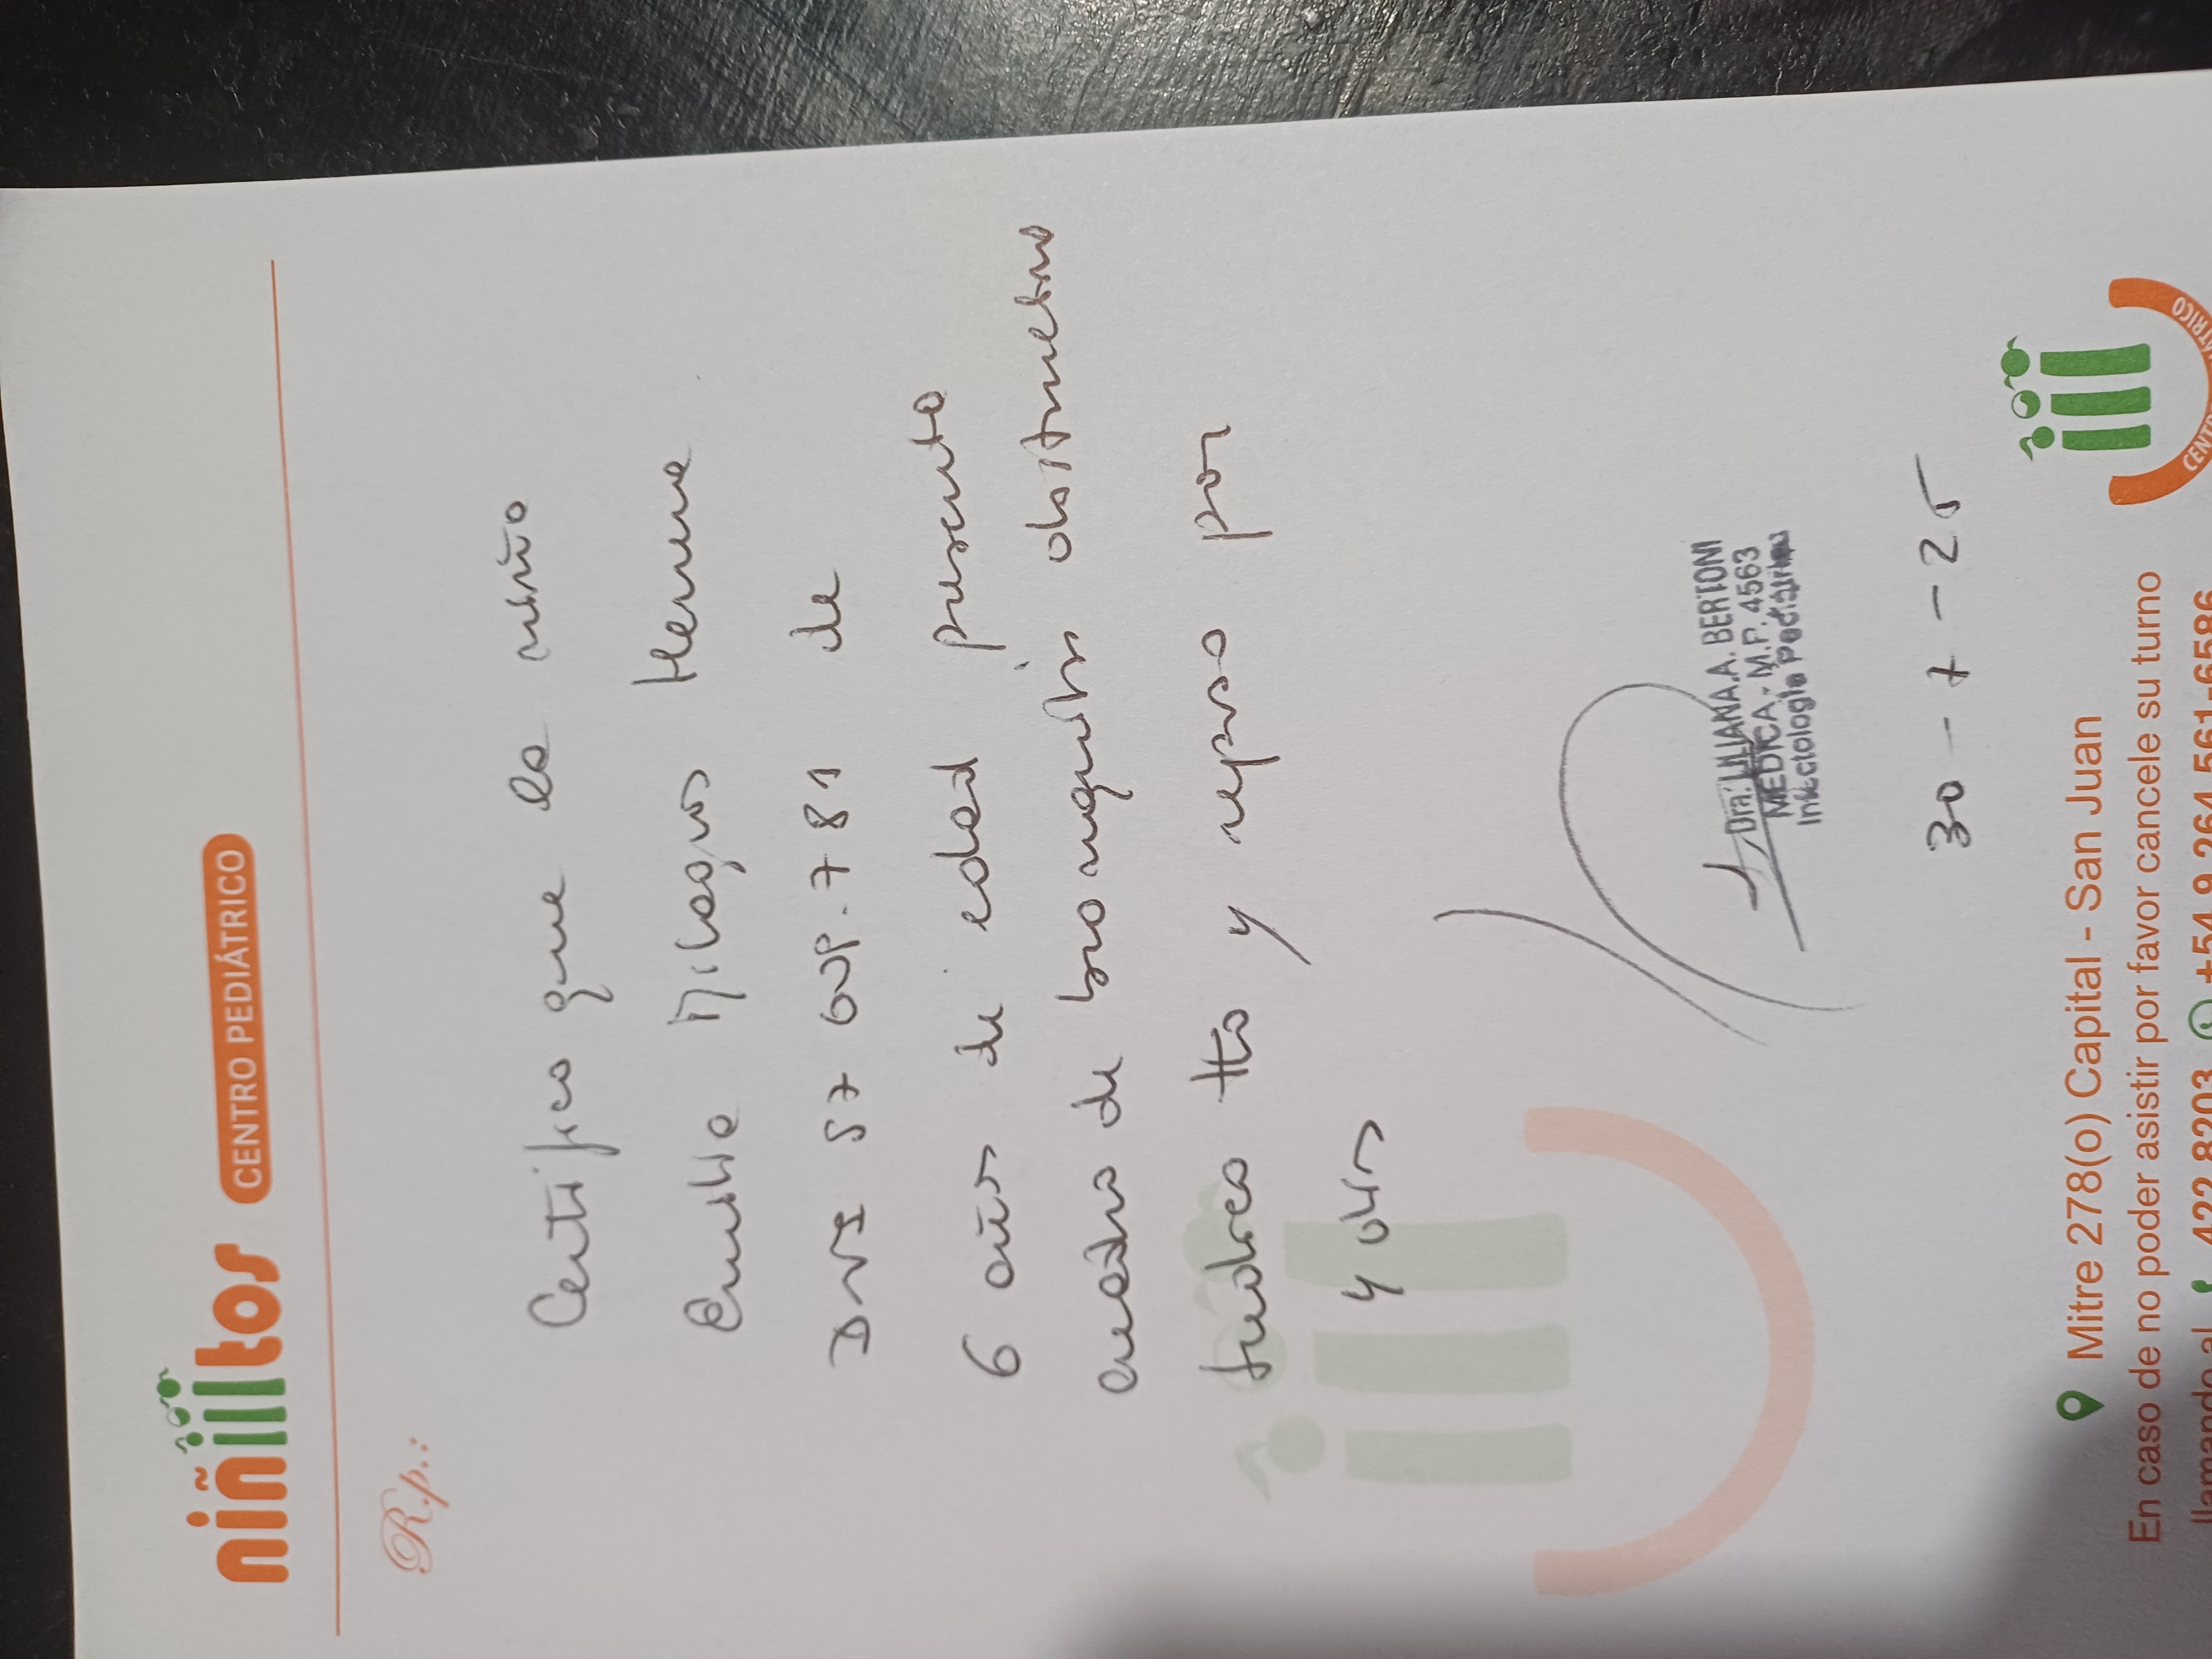 niñitos CENTRO PEDIÁTRICO
Rp.:
Certifico que la niña
Emilia Milagros
DNI 57 609.781 de
6 años de edad presenta
cuadro de bronquitis obstructiva
indico tto y reposo por
Dra. LILIANA A. BERTONI
MEDICA - M.P. 4563
Infectologia Pediatrica
30-7-25
CENTRO PEDIÁTRICO
Mitre 278(o) Capital - San Juan
En caso de no poder asistir por favor cancele su turno
llamando al 422 8203 +54 9 264 561-6586